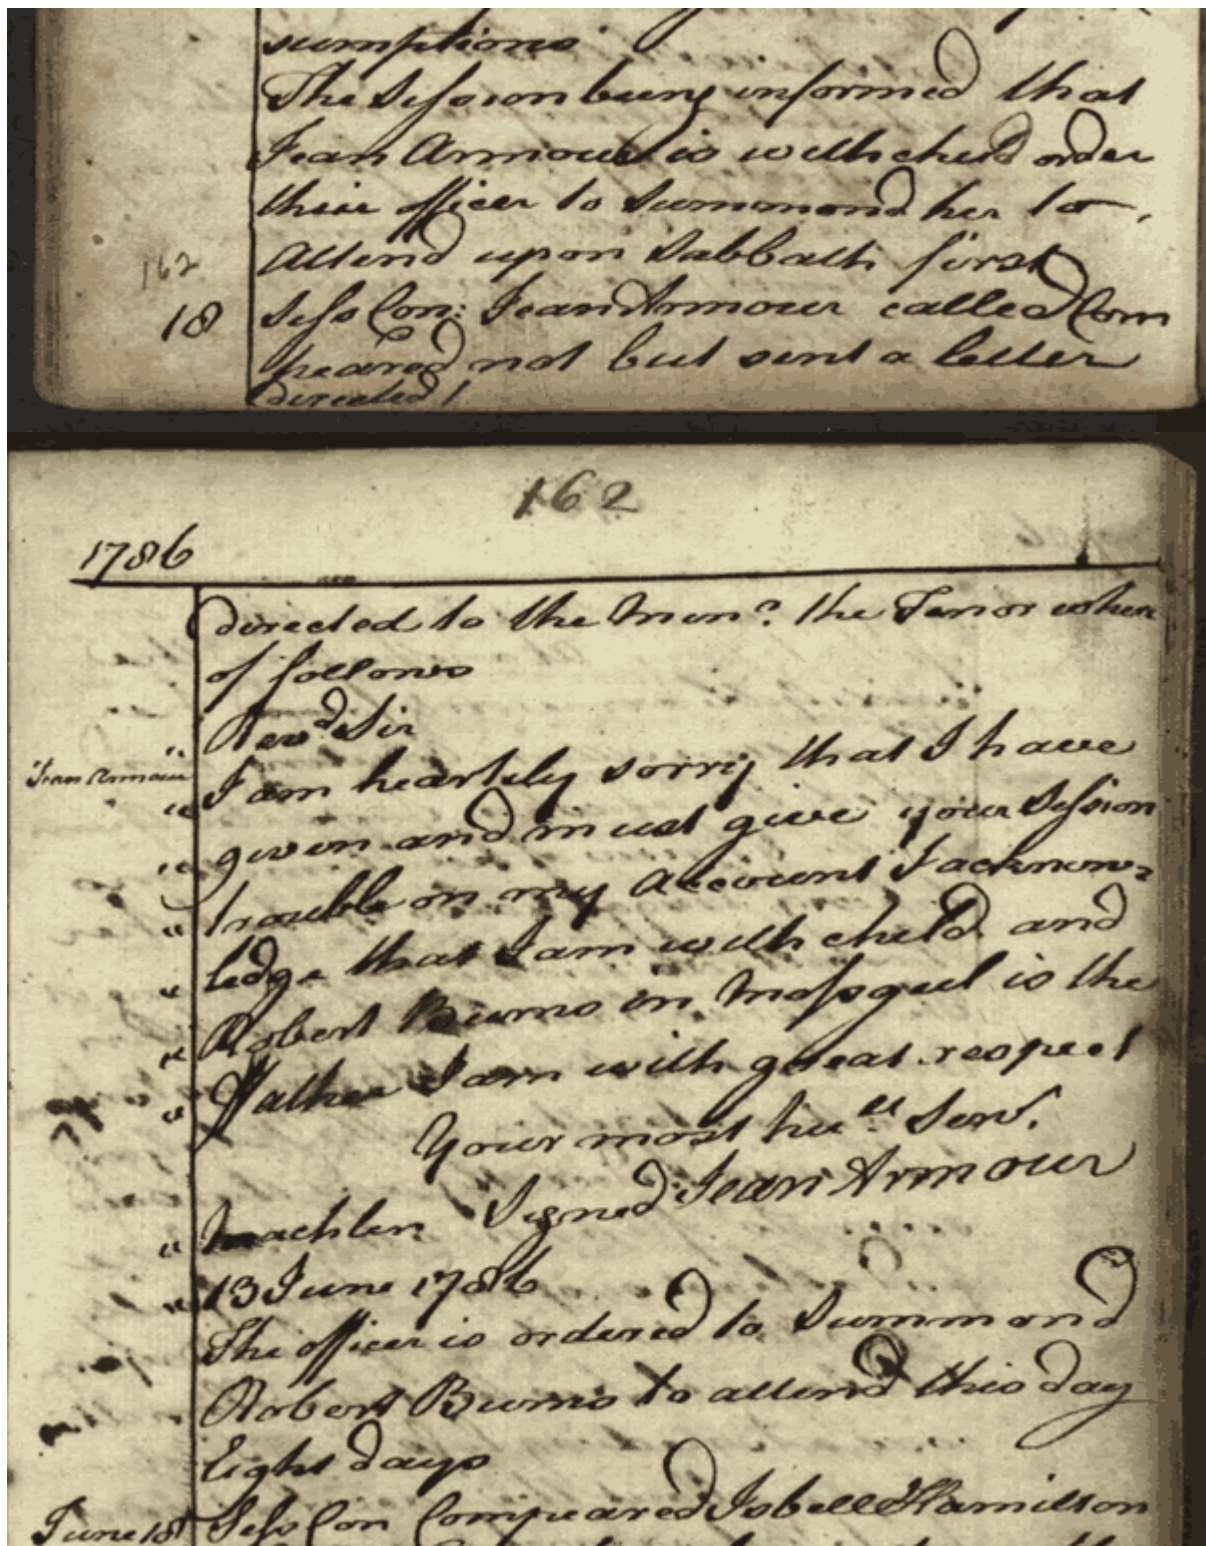 sumptions
The Session being informed that
Jean Armour is with child order
their officer to Summond her to
Attend upon Sabbath first
162
18 Sess Con: Jean Armour called Com
peared not but sent a letter
directed /
162
1786
directed to the Minr. the Tenor wher
of follows
" Revd Sir
Jean Armour
" I am heartily sorry that I have
" given and must give your Session
" trouble on my Account I acknow=
" ledge that I am with child and
" Robert Burns in Mossgiel is the
" Father I am with great respect
Your most hu.ll Servt.
" Machlin Signed Jean Armour
" 13 June 1786
The officer is ordered to Summond
Robert Burns to attend this day
Eight days
June 18t Sess Con Compeared Isbell Hamilton